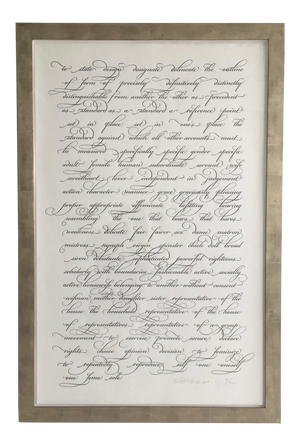 to state design designate delineate the outline
of form of precisely definitively distinctly
distinguishable from another the other as precedent
as standard as a standard a reference point
set in place set in one's place the
standard against which all other accounts must
be measured specifically specific gender specific
adult female human subordinate servant wife
sweetheart lover independent in judgement
action character manner grace graciously pleasing
proper appropriate affirmed befitting having
resembling the one that bears that bares
weakness delicate fair fairer sex dame matron
mistress nymph virgin spinster chick doll broad
siren debutante sophisticated powerful righteous
scholarly with boundaries fashionable active socially
active housewife belonging to another without consent
woman mother daughter sister representative of the
house the household representative of the house
of representatives representative of a group
movement to exercise promote secure declare
rights choice opinion decision to feminize
to repetitively reproduce self one oneself
one same sole